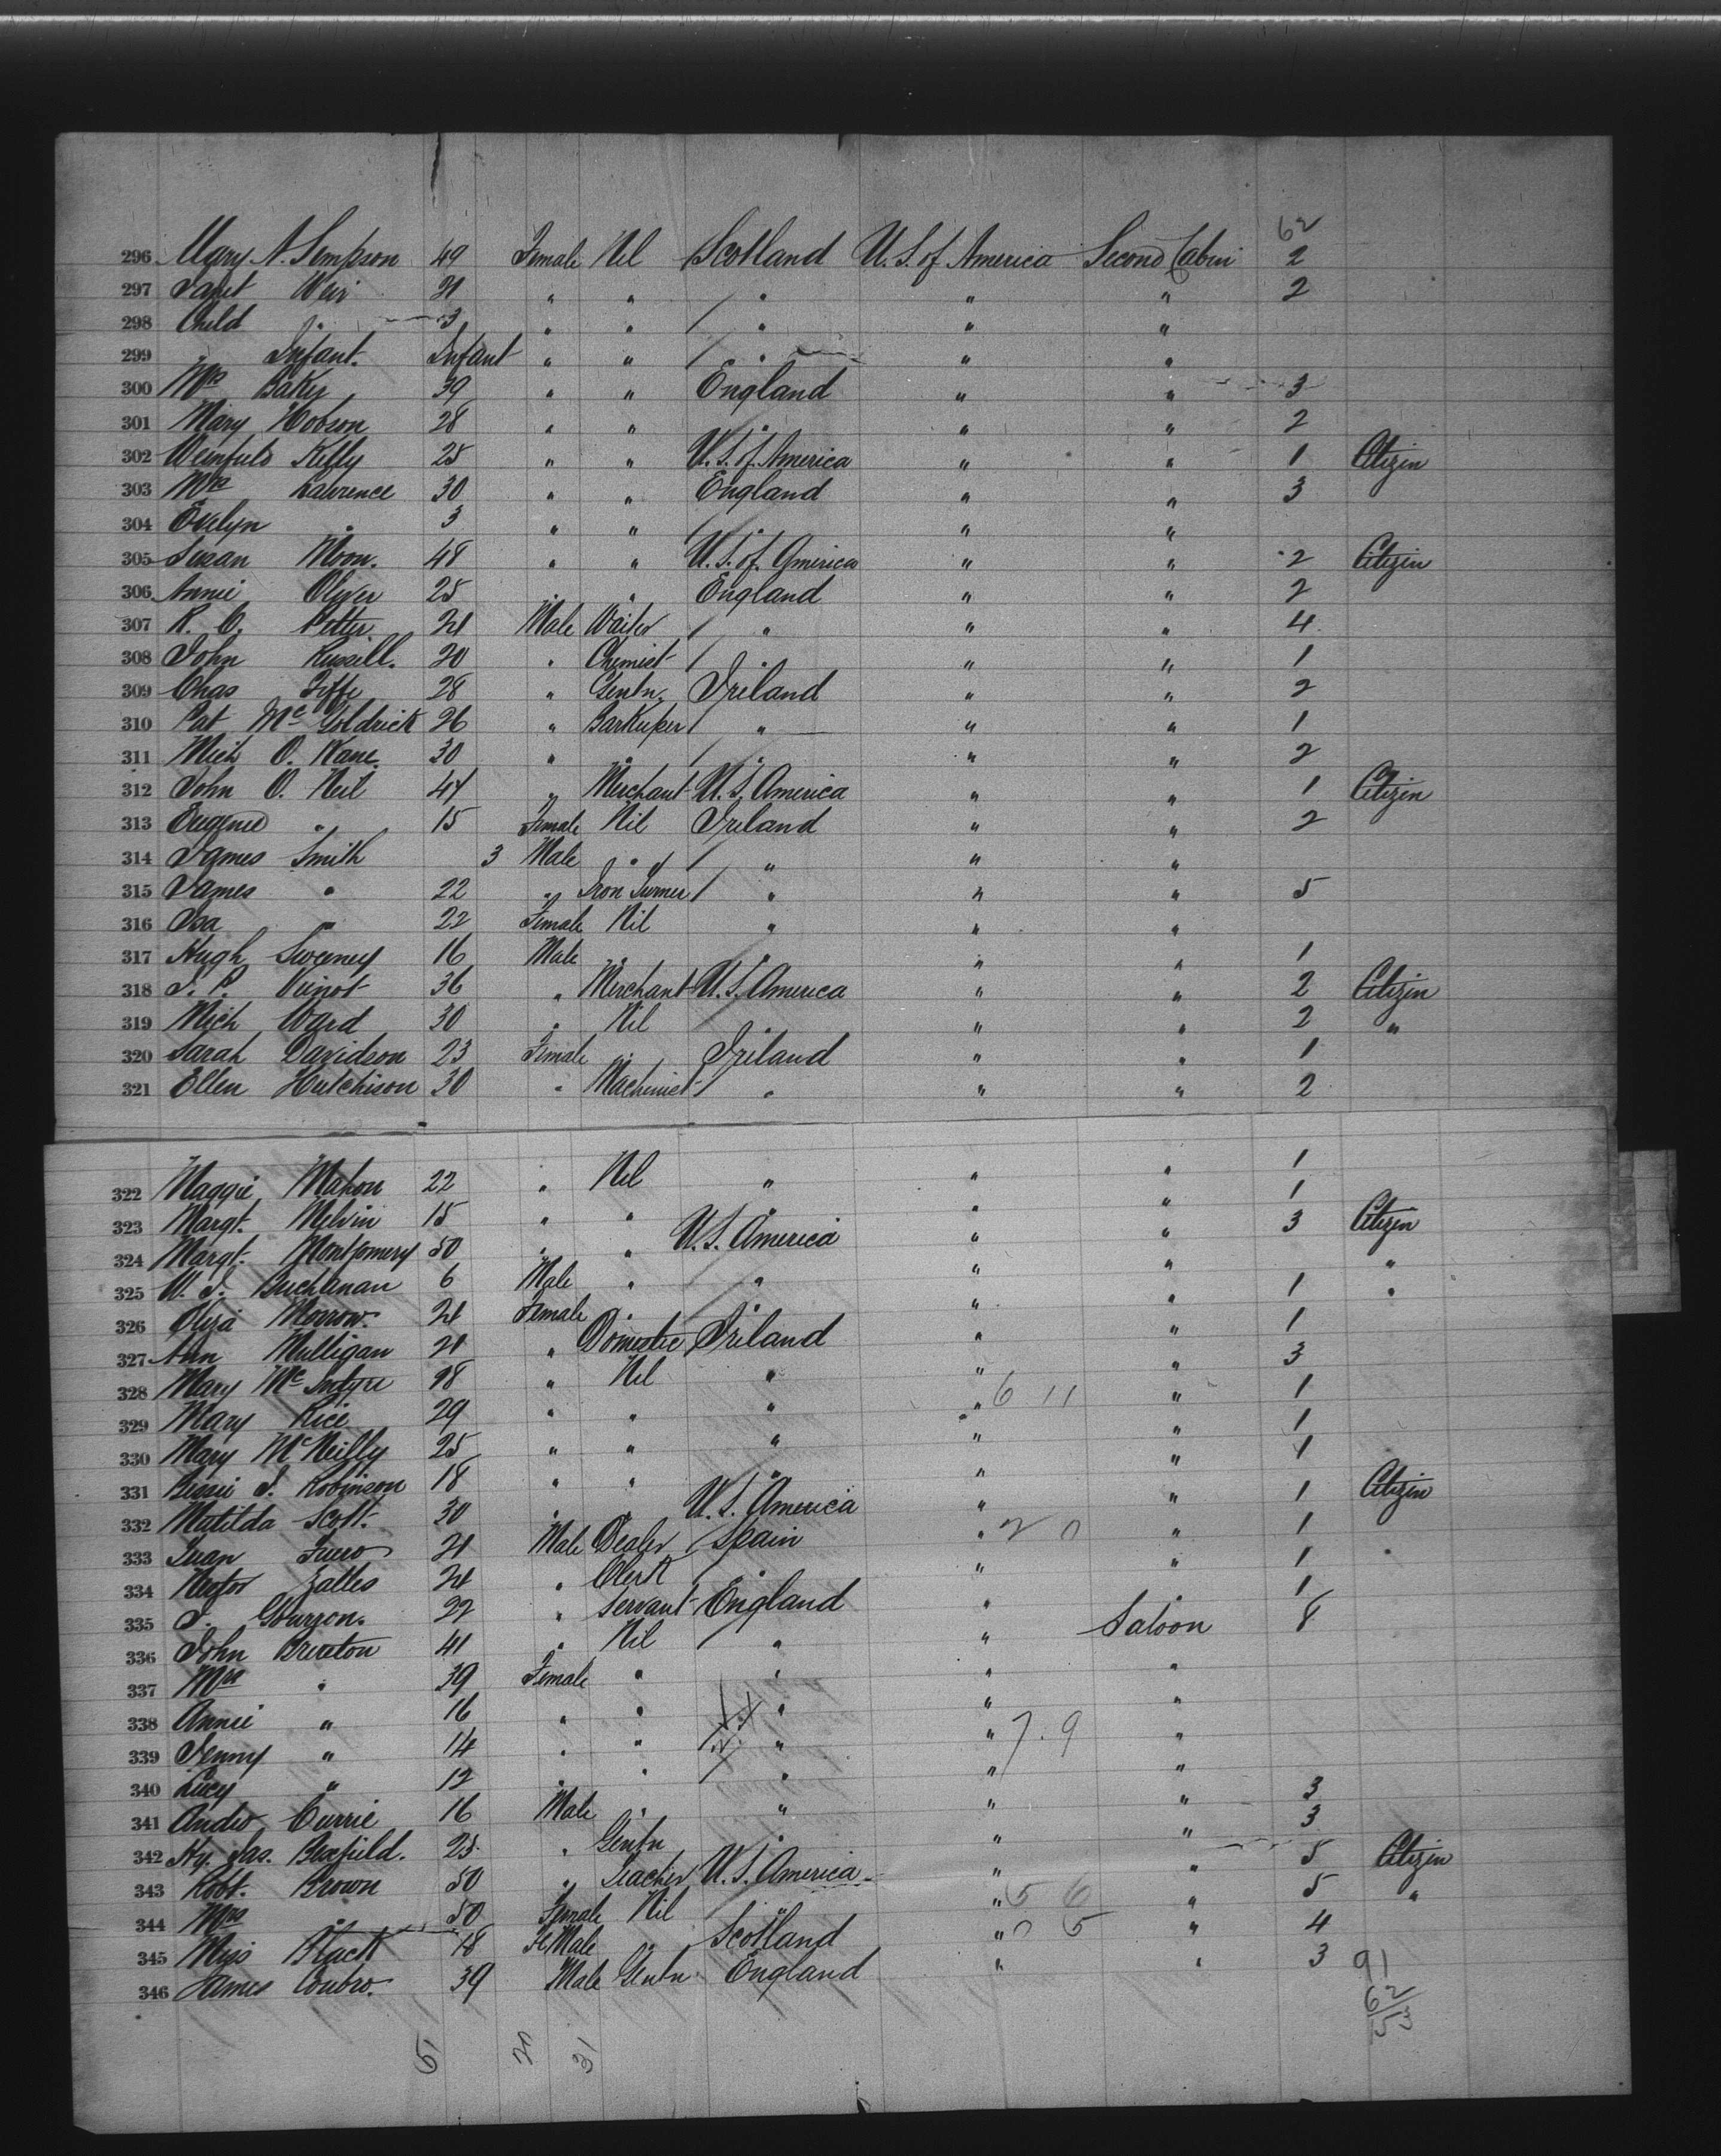 62
296 Mary A. Simpson 49 Female Nil Scotland U.S. of America Second Cabin 2
297 Janet Weir 21 " " " " " 2
298 Child " 3 " " " " "
299 " Infant. Infant " " " " "
300 Mrs 39 " " England " " 3
301 Mary Hobson 28 " " " " " 2
302 Kelly 25 " " U.S. of America " " 1 Citizen
303 Mrs Lawrence 30 " " England " " 3
304 Evelyn " 3 " " " " "
305 Susan Moon. 48 " " U.S. of America " " 2 Citizen
306 Annie Oliver 25 " " England " " 2
307 R. C. Potter 24 Male Waiter " " " 4
308 John Russell. 20 " Chemist " " " 1
309 Chas 28 " Gentn. Ireland " " 2
310 Pat McGoldrick 26 " Barkeeper " " " 1
311 Mich O. Kane. 30 " " " " " 2
312 John O. Neil 44 " Merchant U.S. America " " 1 Citizen
313 Eugenie " 15 Female Nil Ireland " " 2
314 James Smith 3 Male " " " "
315 James " 22 " Iron Turner " " " 5
316 Isa " 22 Female Nil " " "
317 Hugh Sweeney 16 Male " " " " 1
318 36 " Merchant U.S. America " " 2 Citizen
319 Mich Ward 30 " Nil " " " 2 "
320 Sarah Davidson 23 Female " Ireland " " 1
321 Ellen Hutchison 30 " Machinist " " " 2
322 Maggie Mahon 22 " Nil " " " 1
323 Margt. Melvin 15 " " " " " 1
324 Margt. Montgomery 50 " " U.S. America " " 3 Citizen
325 W. J. Buchanan 6 Male " " " " "
326 Eliza Morrow. 24 Female " " " " 1 "
327 Ann Mulligan 21 " Domestic Ireland " " 1
328 Mary McIntyre 28 " Nil " " " 3
329 Mary Rice 29 " " " " 6 11 " 1
330 Mary McNeilly 25 " " " " " 1
331 Bessie J. Robinson 18 " " " " " 1
332 Matilda Scott. 30 " " U.S. America " " 1 Citizen
333 Juan 21 Male Dealer Spain " 2 0 " 1
334 Zalles 24 " Clerk " " " 1
335 J. Gourzon. 22 " Servant England " " 1
336 John Brereton 41 " Nil " " Saloon 8
337 Mrs " 39 Female " " " "
338 Annie " 16 " " " " "
339 Jenny " 14 " " " " 7.9 "
340 Lucy " 12 " " " " "
341 Andw Currie 16 Male " " " " 3
342 Hy. Jas. Bexfield. 25 " Gentn " " " 3
343 Robt. Brown 50 " Teacher U.S. America " " 5 Citizen
344 Mrs " 50 Female Nil " 5 6 " 5 "
345 Miss Black 18 FeMale " Scotland " 0 5 " 4
346 James Coubro. 39 Male Gentn England " " 3
91
62
153
51 20 31